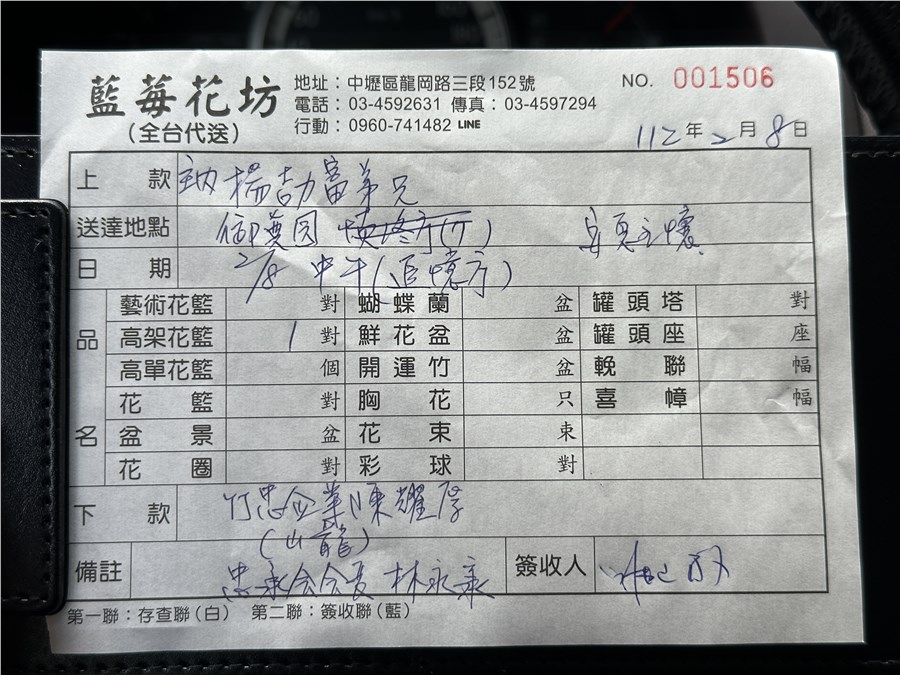 藍莓花坊
(全台代送)
地址：中壢區龍岡路三段152號
電話：03-4592631 傳真：03-4597294
行動：0960-741482 LINE
NO. 001506
112年2月8日
上款 楊吉富弟兄
送達地點 御奠園 安息主懷
日期 2/8 中午(追憶厅)
品名
藝術花籃 對 蝴蝶蘭 盆 罐頭塔 對
高架花籃 1 對 鮮花盆 盆 罐頭座 座
高單花籃 個 開運竹 盆 輓聯 幅
花籃 對 胸花 只 喜幛 幅
盆景 盆 花束 束
花圈 對 彩球 對
下款 竹忠企業 陳耀
(山龍)
備註 忠永会会長 林永泰 簽收人
第一聯：存查聯(白) 第二聯：簽收聯(藍)